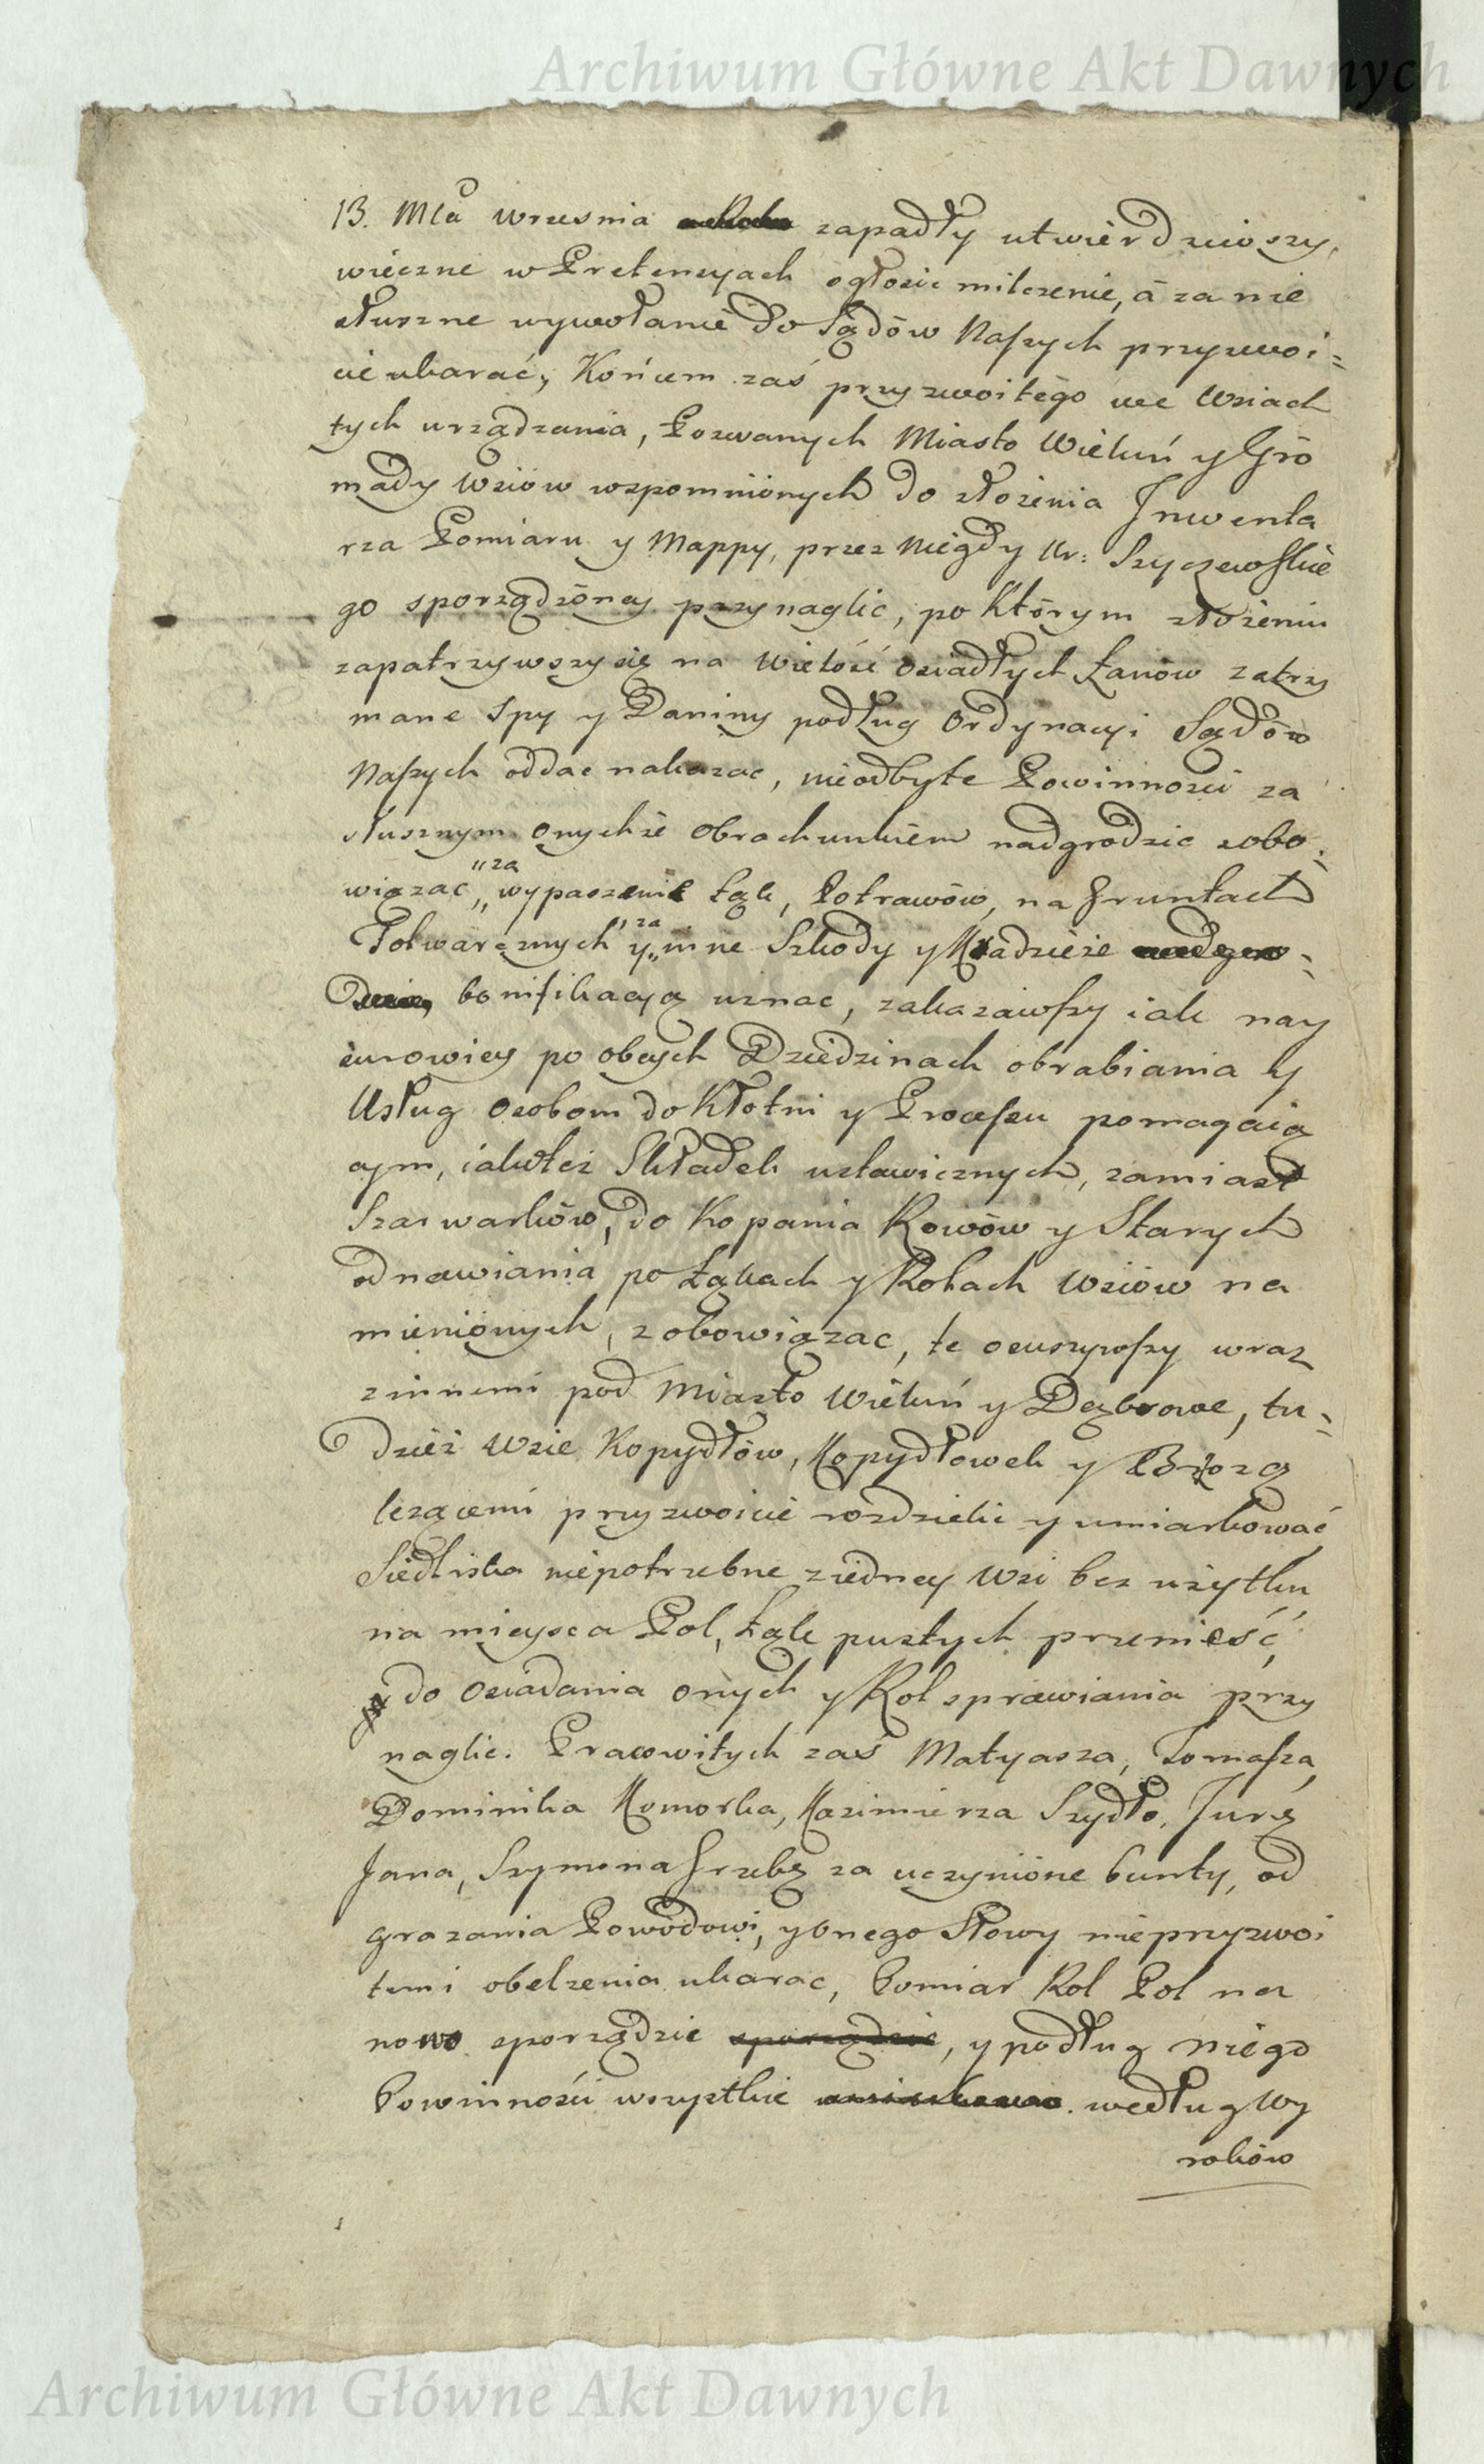 Archiwum Główne Akt Dawnych
13. Mca wrzesnia zapadły utwierdziwszy,
wieczne w Pretensyach ogłosic milczenie, á za nie
słuszne wywołanie do Sądów Naszych przyzwoi=
cie ukarać, Końcem zaś przyzwoitego we Wsiach
tych urządzenia, Pozwanych Miasto Wieluń y Gro
mady Wsiów wspomnionych do złożenia Inwenta
rza Pomiaru y Mappy, przez niegdy Ur: Szyczewskie
go sporządzoney przynaglic, po którym złożeniu
zapatrzywszy się na wielość osiadłych Łanów zatrzy
mane Spy y Daniny podług Ordynacyi Sądów
Naszych oddac nakazac, nieodbyte Powinnosci za
słusznym onychże obrachunkiem nadgrodzic zobo=
wiązac, „za wypaszenie Łąk, Potrawów, na Gruntach
Folwarcznych y „za inne Szkody y Kradzieże
bonifikacyą uznac, zakazawszy iak nay
surowiey po obcych Dziedzinach obrabiania y
Usług osobom do Kłotni y Processu pomagaią
cym, iakoteż Składek ustawicznych, zamiast
Szarwarków, do Kopania Rowów y Starych
odnawiania po Łąkach y Rolach Wsiów na
mienionych, zobowiązac, te osuszywszy wraz
z innemi pod Miasto Wieluń y Dąbrowe, tu=
dzież Wsie Kopydłów, Kopydłowek y Brzozą
lezącemi przyzwoicie rozdzielic y umiarkować
Siedliska niepotrzebne z iedney Wsi bez użytku
na mieysca Pol, Łąk pustych przenieść,
do Osiadania onych y Rol sprawiania przy
naglic. Pracowitych zaś Matyasza, Tomasza,
Dominika Komorka, Kazimierza Szydło, Jurę
Jana, Szymona Grzebę za uczynione bunty, od
grazania Powodowi, y onego Słowy nieprzyzwoi
temi obelzenia ukarac, Pomiar Rol Pol na
nowo sporządzic sporządzic, y podług niego
Powinności wszystkie według Wy
roków
Archiwum Główne Akt Dawnych